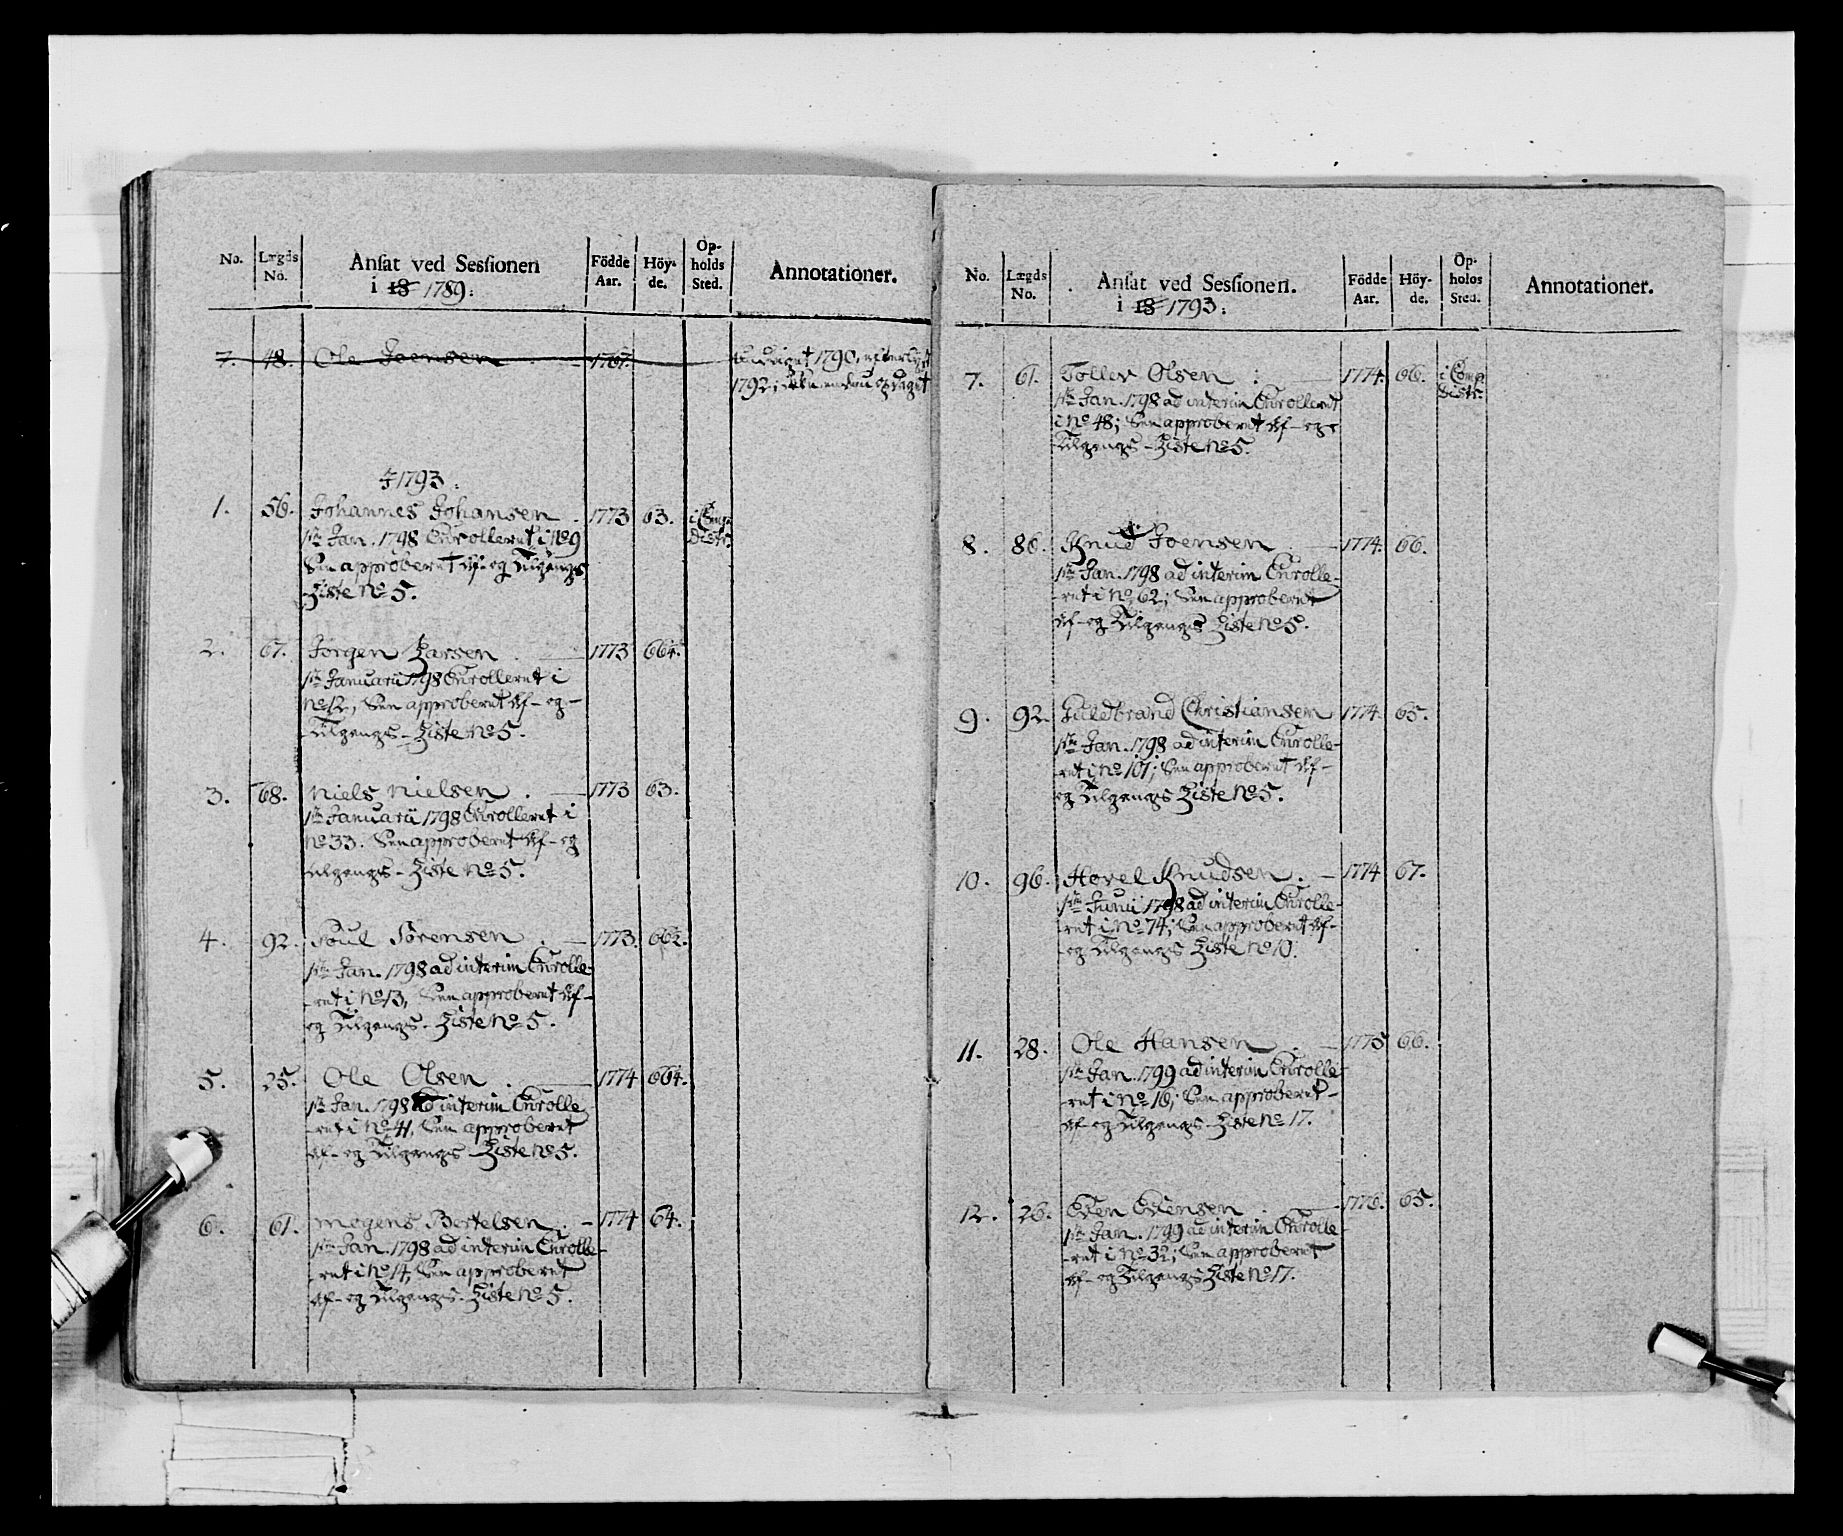 No. Lægds No. Ansat ved Sessionen i 18 1789: Födde Aar. Höyde. Opholds Sted. Annotationer.
7. 48. Ole Joensen . 1767. 1790, efterlyst
1792; ikke endnu opdaget
I 1793:
1. 56. Johannes Johansen . 1773 63. i Comp.
1ste Jan. 1798 Enrolleret i No 9 Distr:
Som approberet Af- og Tilgangs
Liste No 5.
2. 67. Jörgen Larsen . 1773 66¼.
1ste Januarii 1798 Enrolleret i
No 12, Som approberet Af- og-
Tilgangs- Liste No 5.
3. 68. Niels Nielsen . 1773 63.
1ste Januarii 1798 Enrolleret i
No 33. Som approberet Af- og
Tilgangs- Liste No 5.
4. 92. Poul Sörensen . 1773. 66½.
1ste Jan. 1798 ad interim Enrolle-
-ret i No 13, Som approberet Af-
og Tilgangs- Liste No 5.
5. 25. Ole Olsen . 1774 66¼.
1ste Jan. 1798 ad interim Enrolle
-ret i No 41, Som approberet
Af- og Tilgangs- Liste No 5.
6. 61. Mogens Bertelsen . 1774 64.
1ste Jan. 1798 ad interim Enrolle-
-ret i No 14, Som approberet
Af- og Tilgangs- Liste No 5.
No. Lægds No. Ansat ved Sessionen. i 18 1793: Födde Aar. Höyde. Opholds Sted. Annotationer.
7. 61. Tollev Olsen : 1774. 66. i Comp.
1ste Jan. 1798 ad interim Enrolleret Distr:
i No 48; Som approberet Af- og
Tilgangs- Liste No 5.
8. 86. Knud Joensen . 1774. 66.
1ste Jan. 1798 ad interim Enrolle-
-ret i No 62; Som approberet
Af- og Tilgangs Liste No 5.
9. 92. Guldbrand Christiansen 1774. 65.
1ste Jan. 1798 ad interim Enrolle-
-ret i No 101; Som approberet Af-
og Tilgangs Liste No 5.
10. 96. Hovel Knudsen . 1774 67.
1ste Junii 1798 ad interim Enrolle-
-ret i No 74; Som approberet Af-
-og Tilgangs Liste No 10.
11. 28. Ole Hansen . 1775 66.
1ste Jan. 1799 ad interim Enrolle-
-ret i No 16; Som approberet-
Af- og Tilgangs- Liste No 17.
12. 26. Even Evensen . 1776. 65.
1ste Jan. 1799 ad interim Enrolle-
-ret i No 32; Som approberet
Af- og Tilgangs Liste No 17.